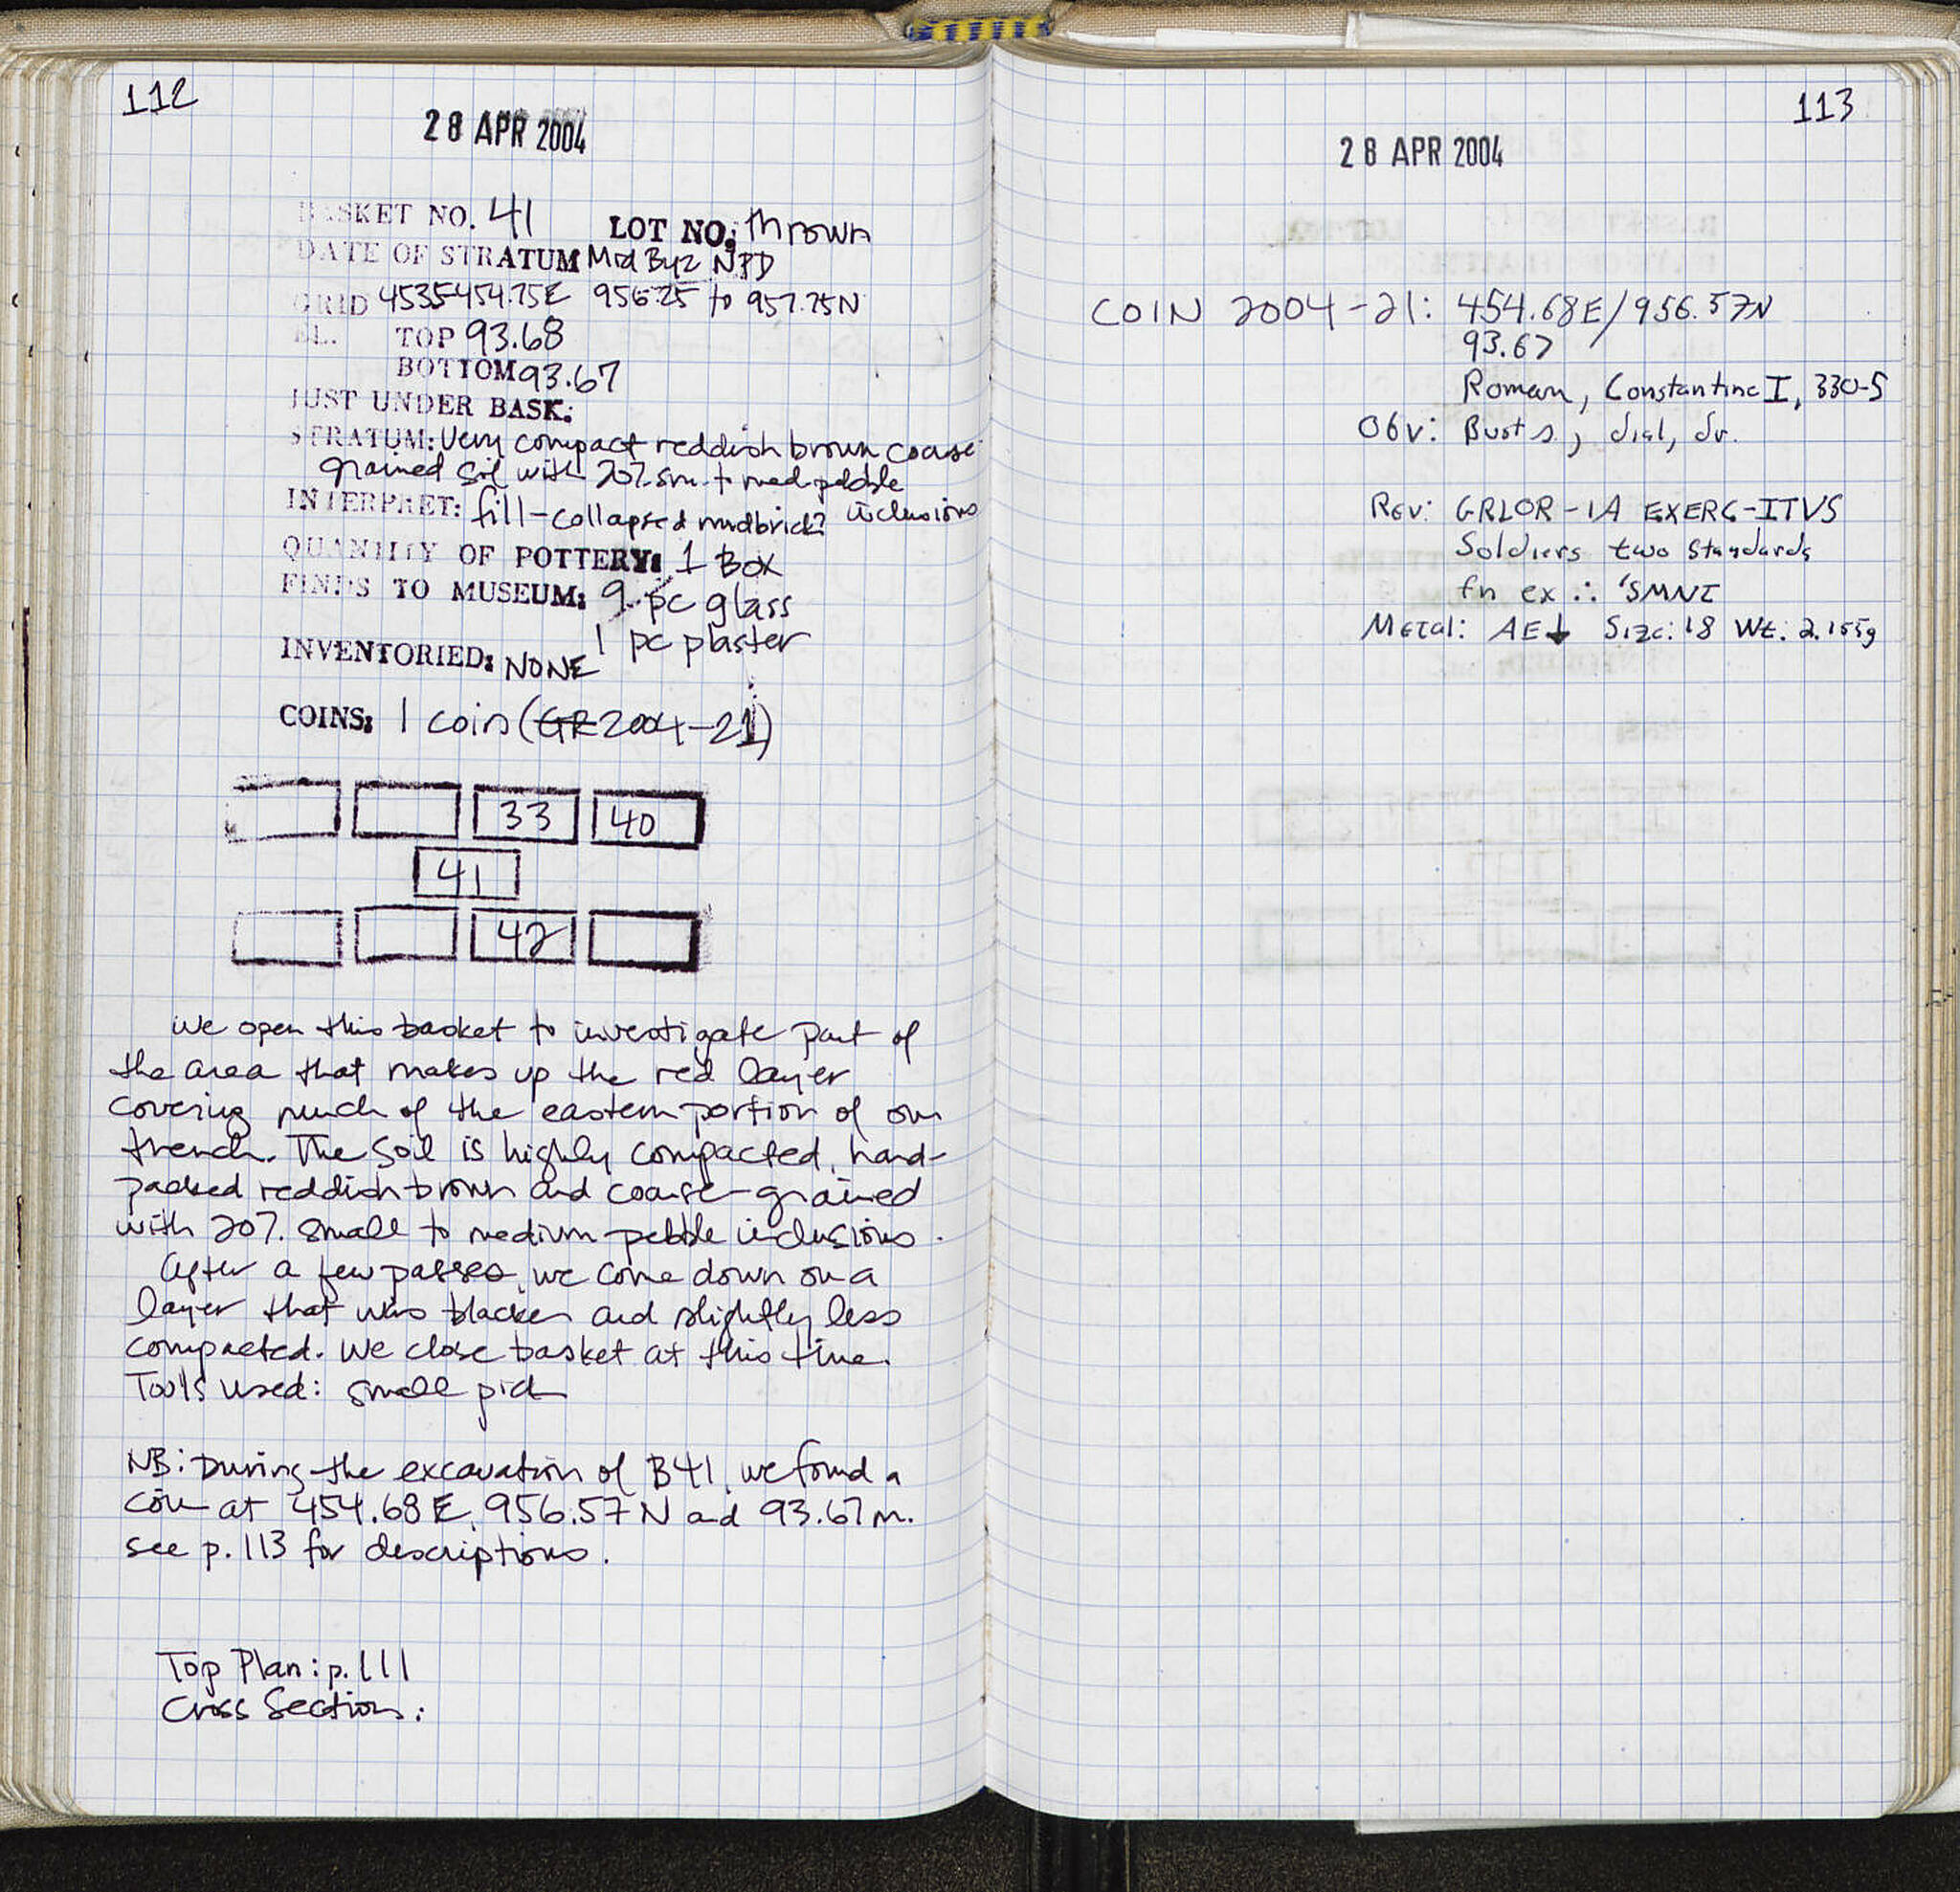 112
28 APR 2004
BASKET NO. 41 LOT NO: thrown
DATE OF STRATUM Mid Byz NPD
GRID 453.5-454.75E 956.25 to 957.75N
EL. TOP 93.68
BOTTOM 93.67
JUST UNDER BASK:
STRATUM: Very compact reddish brown coarse
grained soil with 20% sm. + med. pebble
inclusions
INTERPRET: fill-collapsed mudbrick?
QUANTITY OF POTTERY: 1 Box
FINDS TO MUSEUM: 9 pc glass
1 pc plaster
INVENTORIED: NONE
COINS: 1 coin (GR 2004-21)
33 40
41
42
We open this basket to investigate part of
the area that makes up the red layer
covering much of the eastern portion of our
trench. The soil is highly compacted, hard-
packed reddish brown and coarse-grained
with 20% small to medium pebble inclusions.
After a few passes, we come down on a
layer that was blacker and slightly less
compacted. We close basket at this time.
Tools used: small pick
NB: During the excavation of B41, we found a
coin at 454.68E, 956.57N and 93.67m.
see p.113 for descriptions.
Top Plan: p.111
Cross Section:
113
28 APR 2004
COIN 2004-21: 454.68E/956.57N
93.67
Roman, Constantine I, 330-5
Obv: Bust s, dial, dr.
Rev: GRLOR-IA EXERC-ITVS
Soldiers two Standards
In ex ∴ 'SMNI
Metal: AE↓ Size: 18 Wt: 2.155g